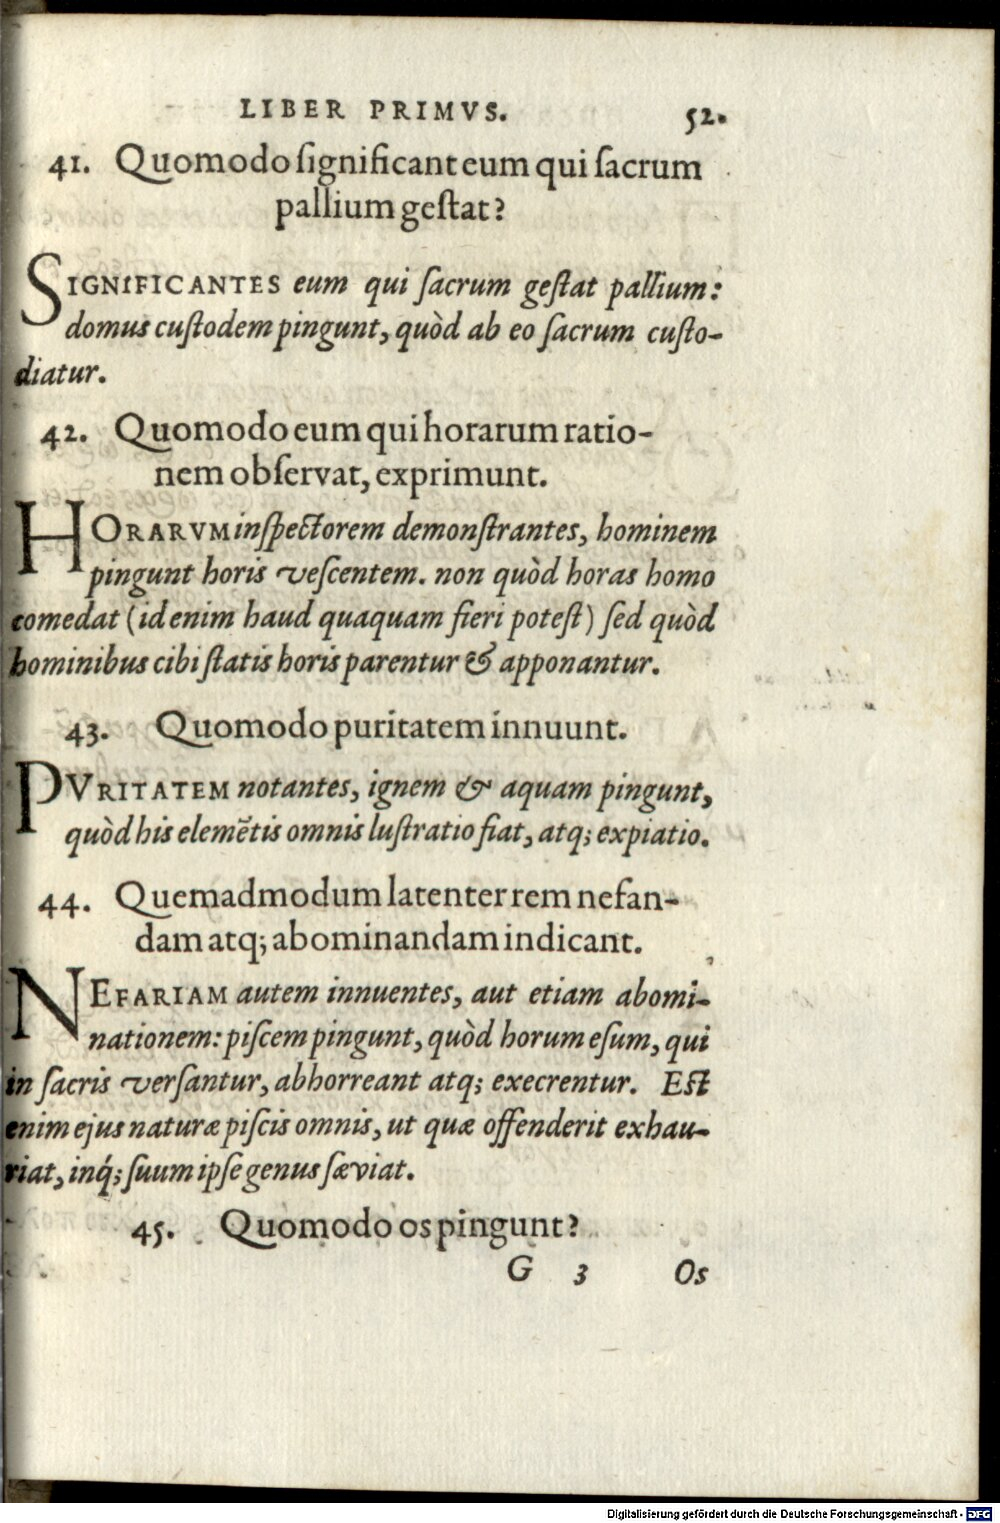 LIBER PRIMVS. 52.
41. Quomodo ſignificant eum qui ſacrum
pallium geſtat?
SIGNIFICANTES eum qui ſacrum geſtat pallium:
domus cuſtodem pingunt, quòd ab eo ſacrum cuſto-
diatur.
42. Quomodo eum qui horarum ratio-
nem obſervat, exprimunt.
HORARVM inſpectorem demonſtrantes, hominem
pingunt horis veſcentem. non quòd horas homo
comedat (id enim haud quaquam fieri poteſt) ſed quòd
hominibus cibi ſtatis horis parentur & apponantur.
43. Quomodo puritatem innuunt.
PVRITATEM notantes, ignem & aquam pingunt,
quòd his elemẽtis omnis luſtratio fiat, atq; expiatio.
44. Quemadmodum latenter rem nefan-
dam atq; abominandam indicant.
NEFARIAM autem innuentes, aut etiam abomi-
nationem: piſcem pingunt, quòd horum eſum, qui
in ſacris verſantur, abhorreant atq; execrentur. Eſt
enim ejus naturæ piſcis omnis, ut quæ offenderit exhau-
riat, inq́; ſuum ipſe genus ſæviat.
45. Quomodo os pingunt?
G 3 Os
Digitalisierung gefördert durch die Deutsche Forschungsgemeinschaft - DFG